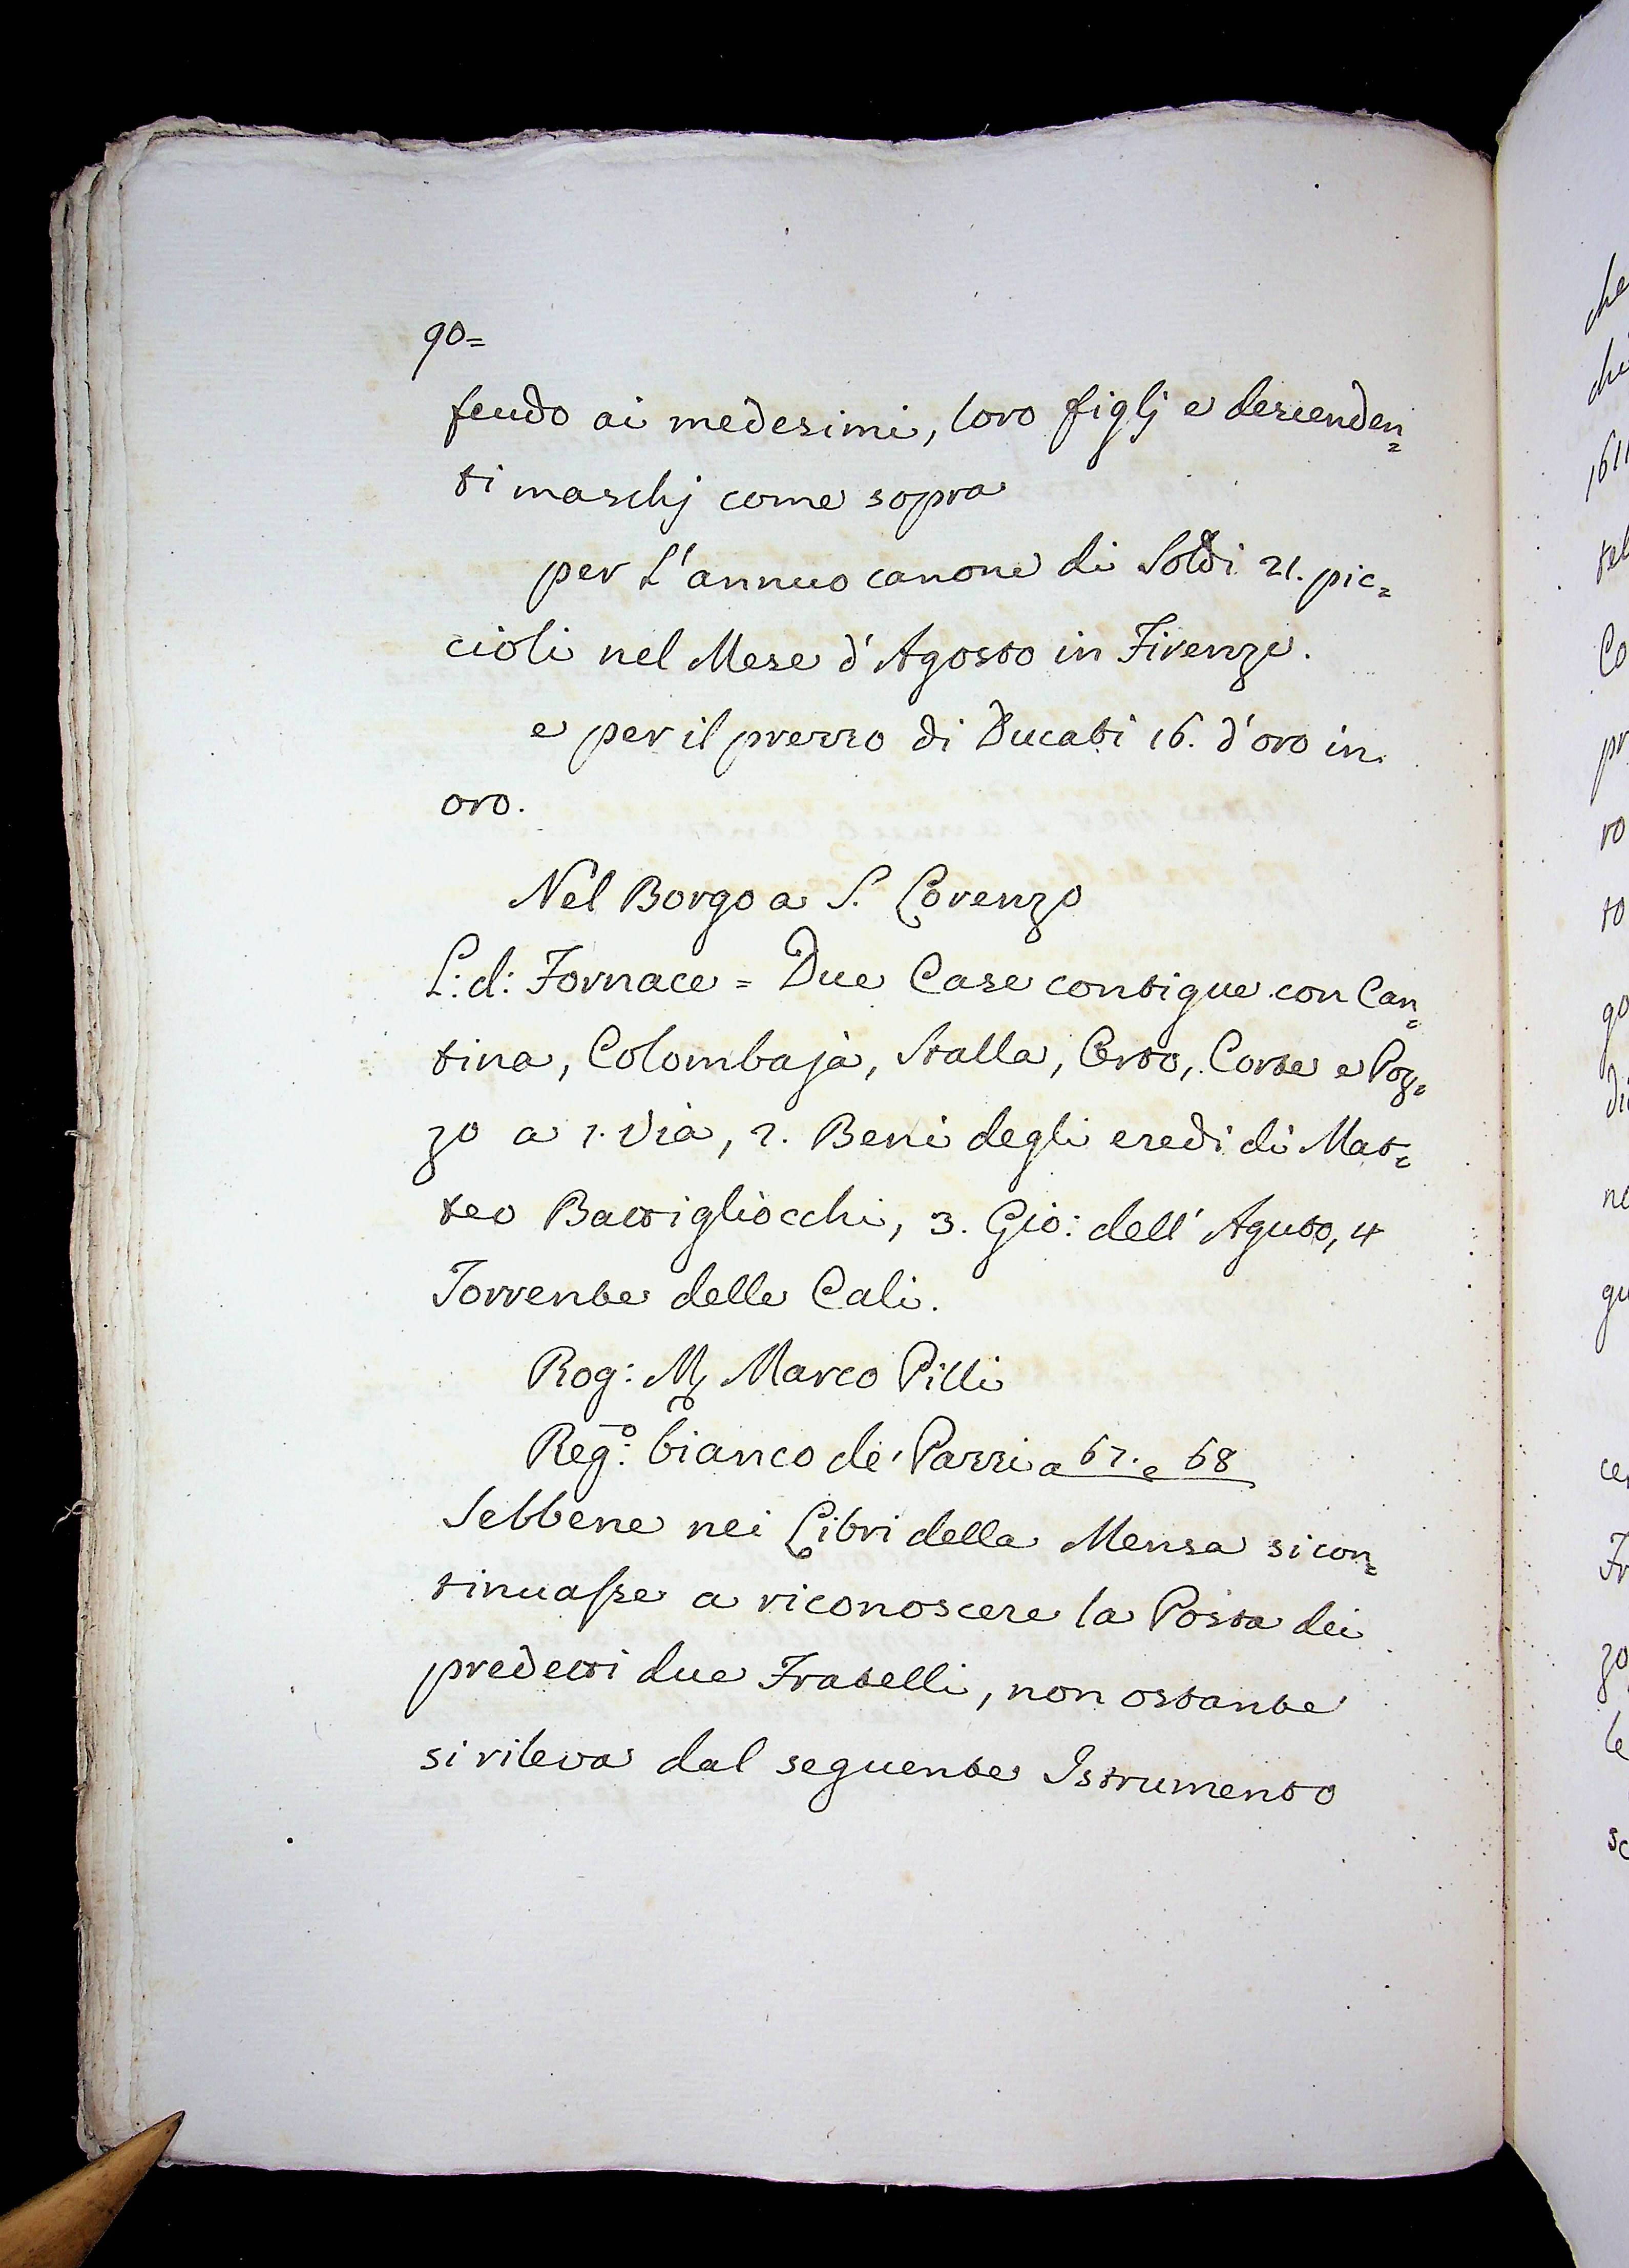 90=
feudo ai medesimi, loro figlj e descenden=
ti maschj come sopra
per L'annuo canone di Soldi 21. pic=
cioli nel Mese d'Agosto in Firenze.
e per il prezzo di Ducati 16. d'oro in
oro.
Nel Borgo a S. Lorenzo
L: d: Fornace = Due Case contigue con Can=
tina, Colombaja, Stalla, Orto, Corte e Poz=
zo a 1. Via, 2. Beni degli eredi di Mat=
teo Battigliocchi, 3. Gio: dell'Aguto, 4
Torrente delle Cali.
Rog: Marco Pilli
Reg:o bianco de' Pazzi a 67. e 68
Sebbene nei Libri della Mensa si con=
tinuasse a riconoscere la Posta dei
predetti due Fratelli, non ostante
si rileva dal seguente Istrumento